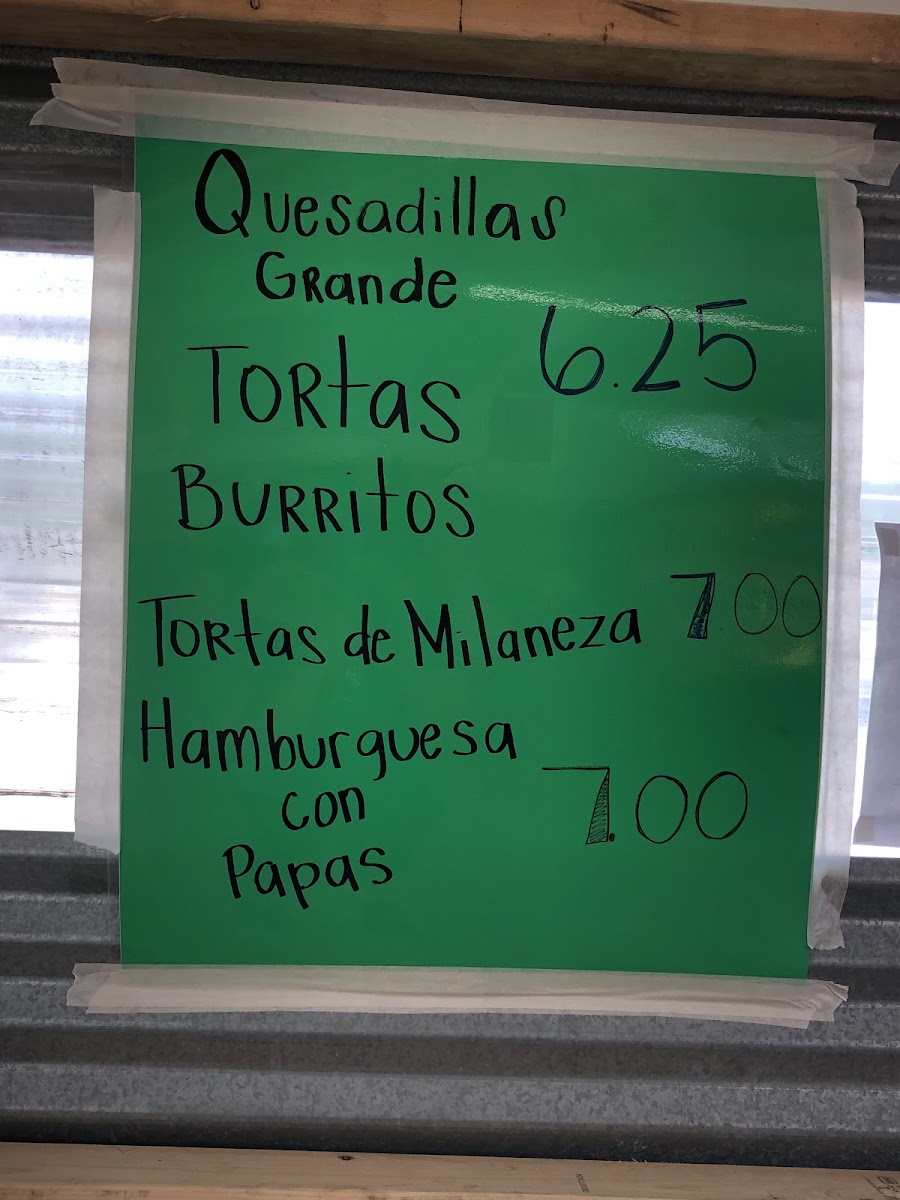 Quesadillas
Grande
6.25
Tortas
Burritos
Tortas de Milaneza 7.00
Hamburguesa
con
7.00
Papas